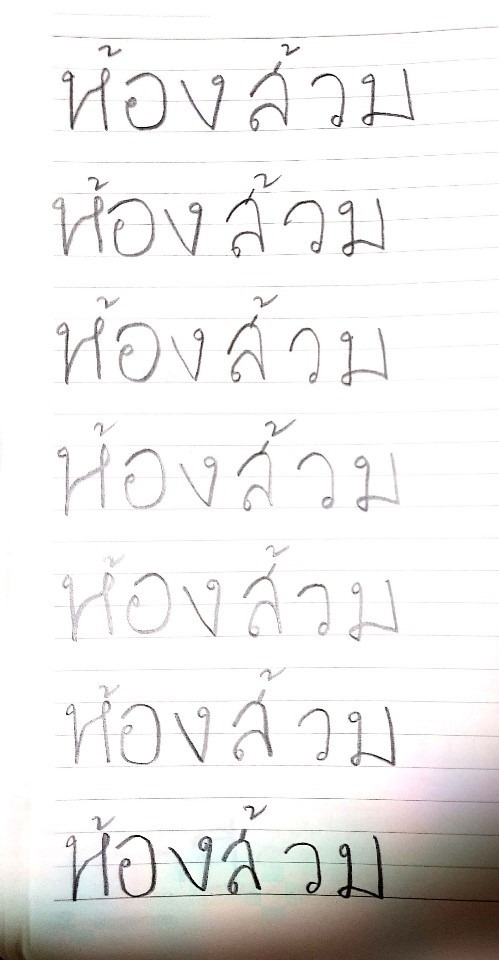 ห้องส้วม
ห้องส้วม
ห้องส้วม
ห้องส้วม
ห้องส้วม
ห้องส้วม
ห้องส้วม